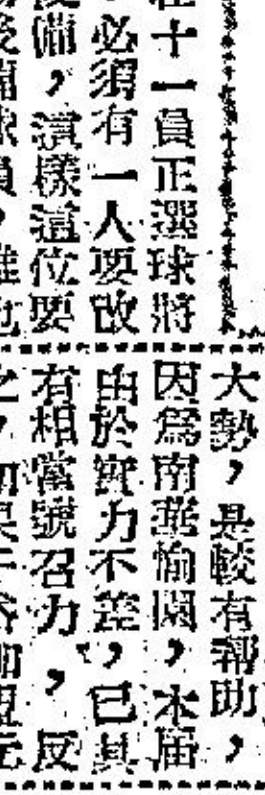 在十一員正選球將
，必須有一人要改
後備，這樣這位要
後備球員，誰也
大勢，是較有幫助，
因為南華愉園，本屆
由於實力不差，已具
有相當號召力，反
之，如果